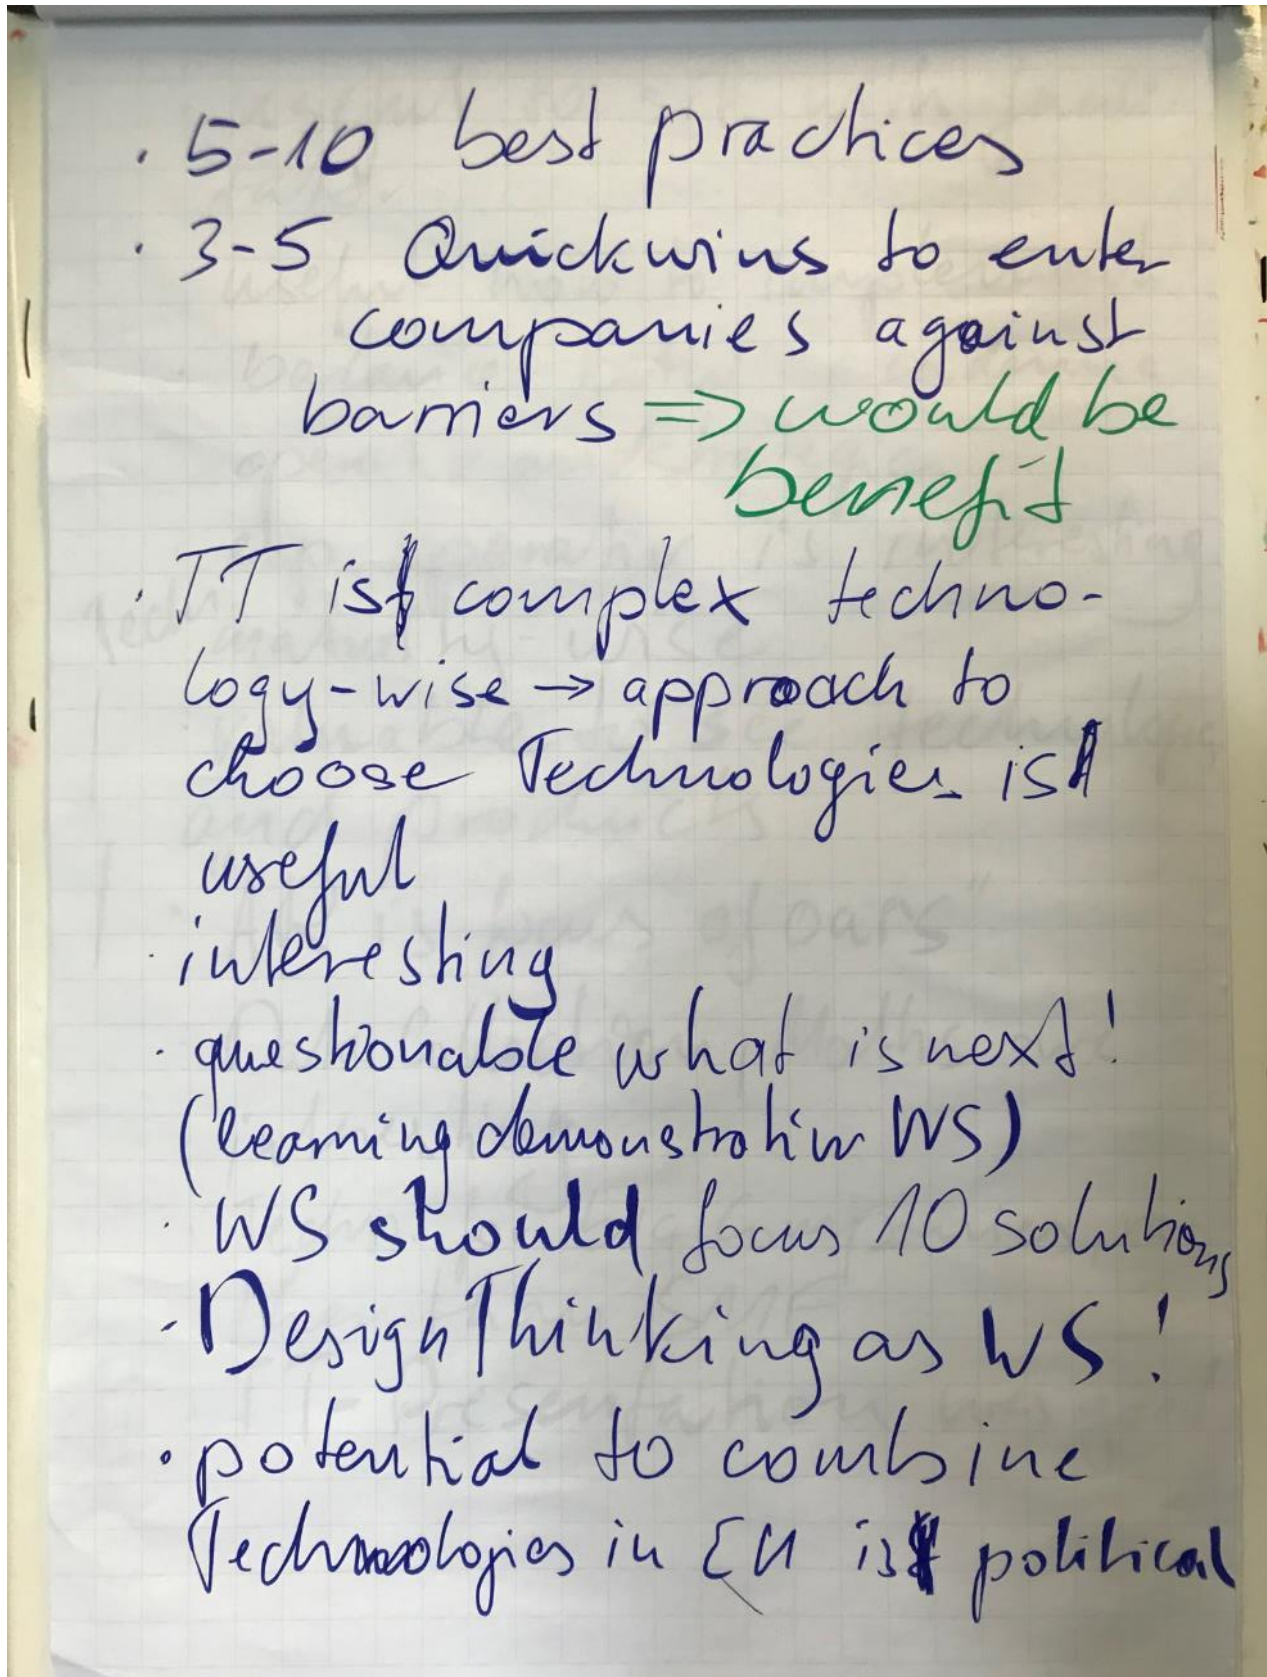 · 5-10 best practices
· 3-5 Quickwins to enter
companies against
barriers => would be
benefit
· TT is complex techno-
logy-wise → approach to
choose Technologies is
useful
· interesting
· questionable what is next!
(learning demonstration WS)
· WS should focus 10 solutions
· Design Thinking as WS!
· potential to combine
Technologies in EU is political